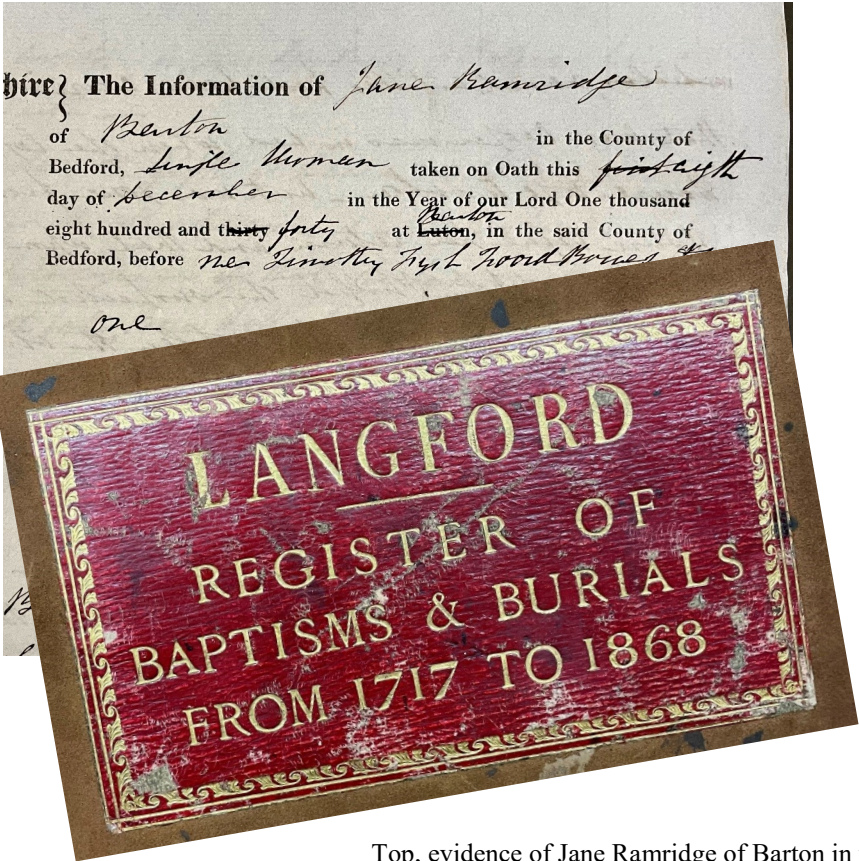 hire} The Information of Jane Ramridge
of Barton in the County of
Bedford, Single Woman taken on Oath this first eigth
day of December in the Year of our Lord One thousand
Barton
eight hundred and thirty forty at Luton, in the said County of
Bedford, before me Timothy
one
LANGFORD
REGISTER OF
BAPTISMS & BURIALS
FROM 1717 TO 1868
Top, evidence of Jane Ramridge of Barton in